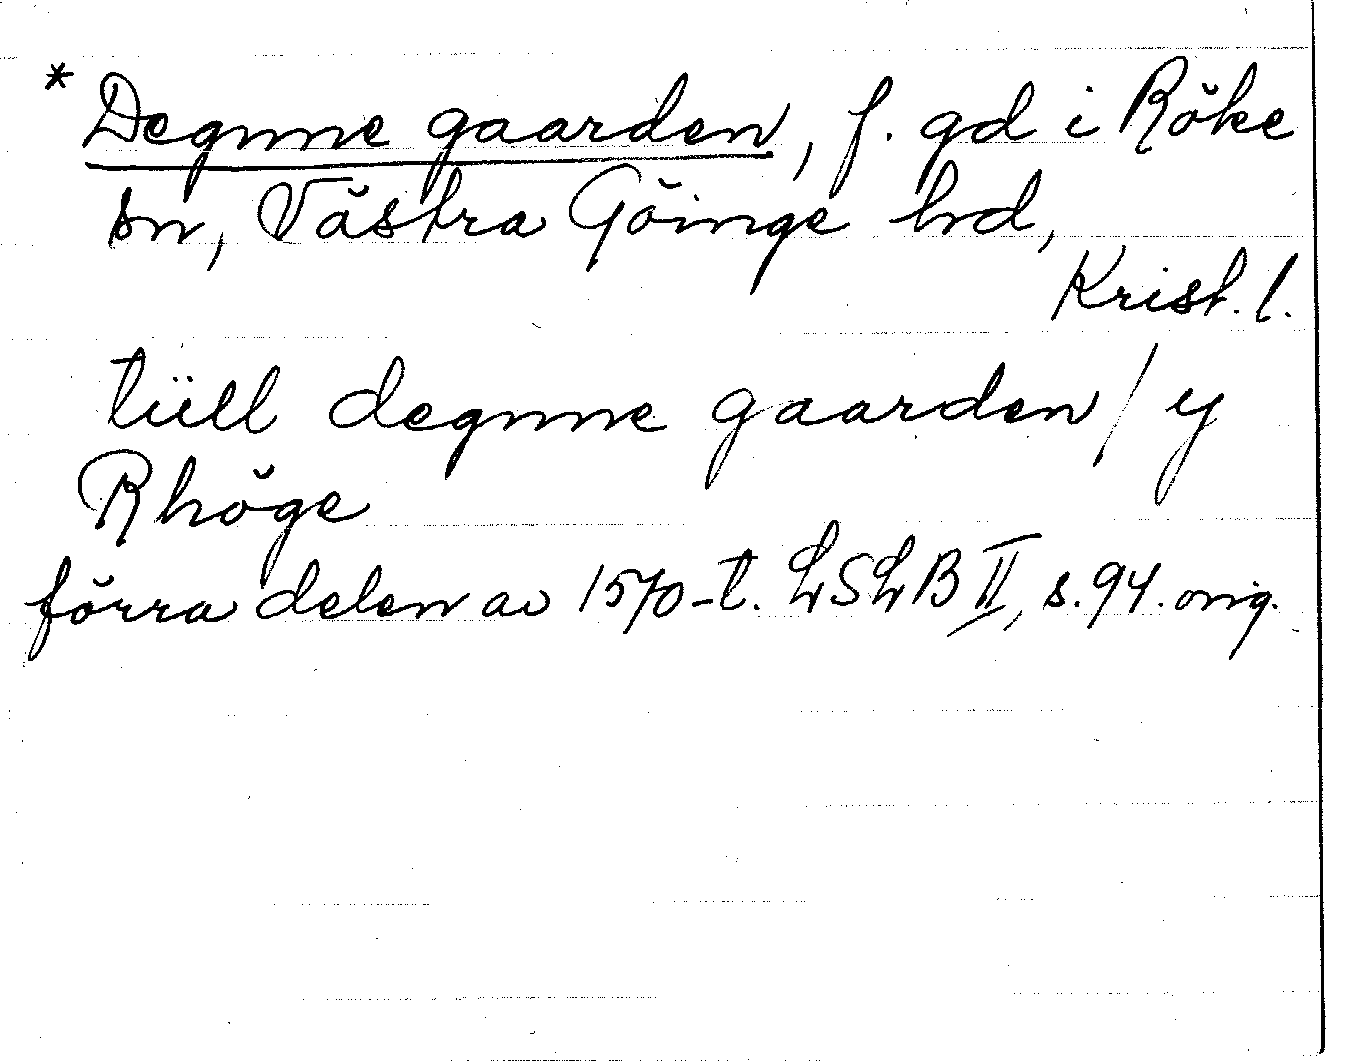 * Degnne gaarden, f. gd i Röke
sn, Västra Göinge hd,
Krist. l.
tüll degnne gaarden / y
Rhöge
förra delen av 1570-t. LSLB II, s. 94. orig.